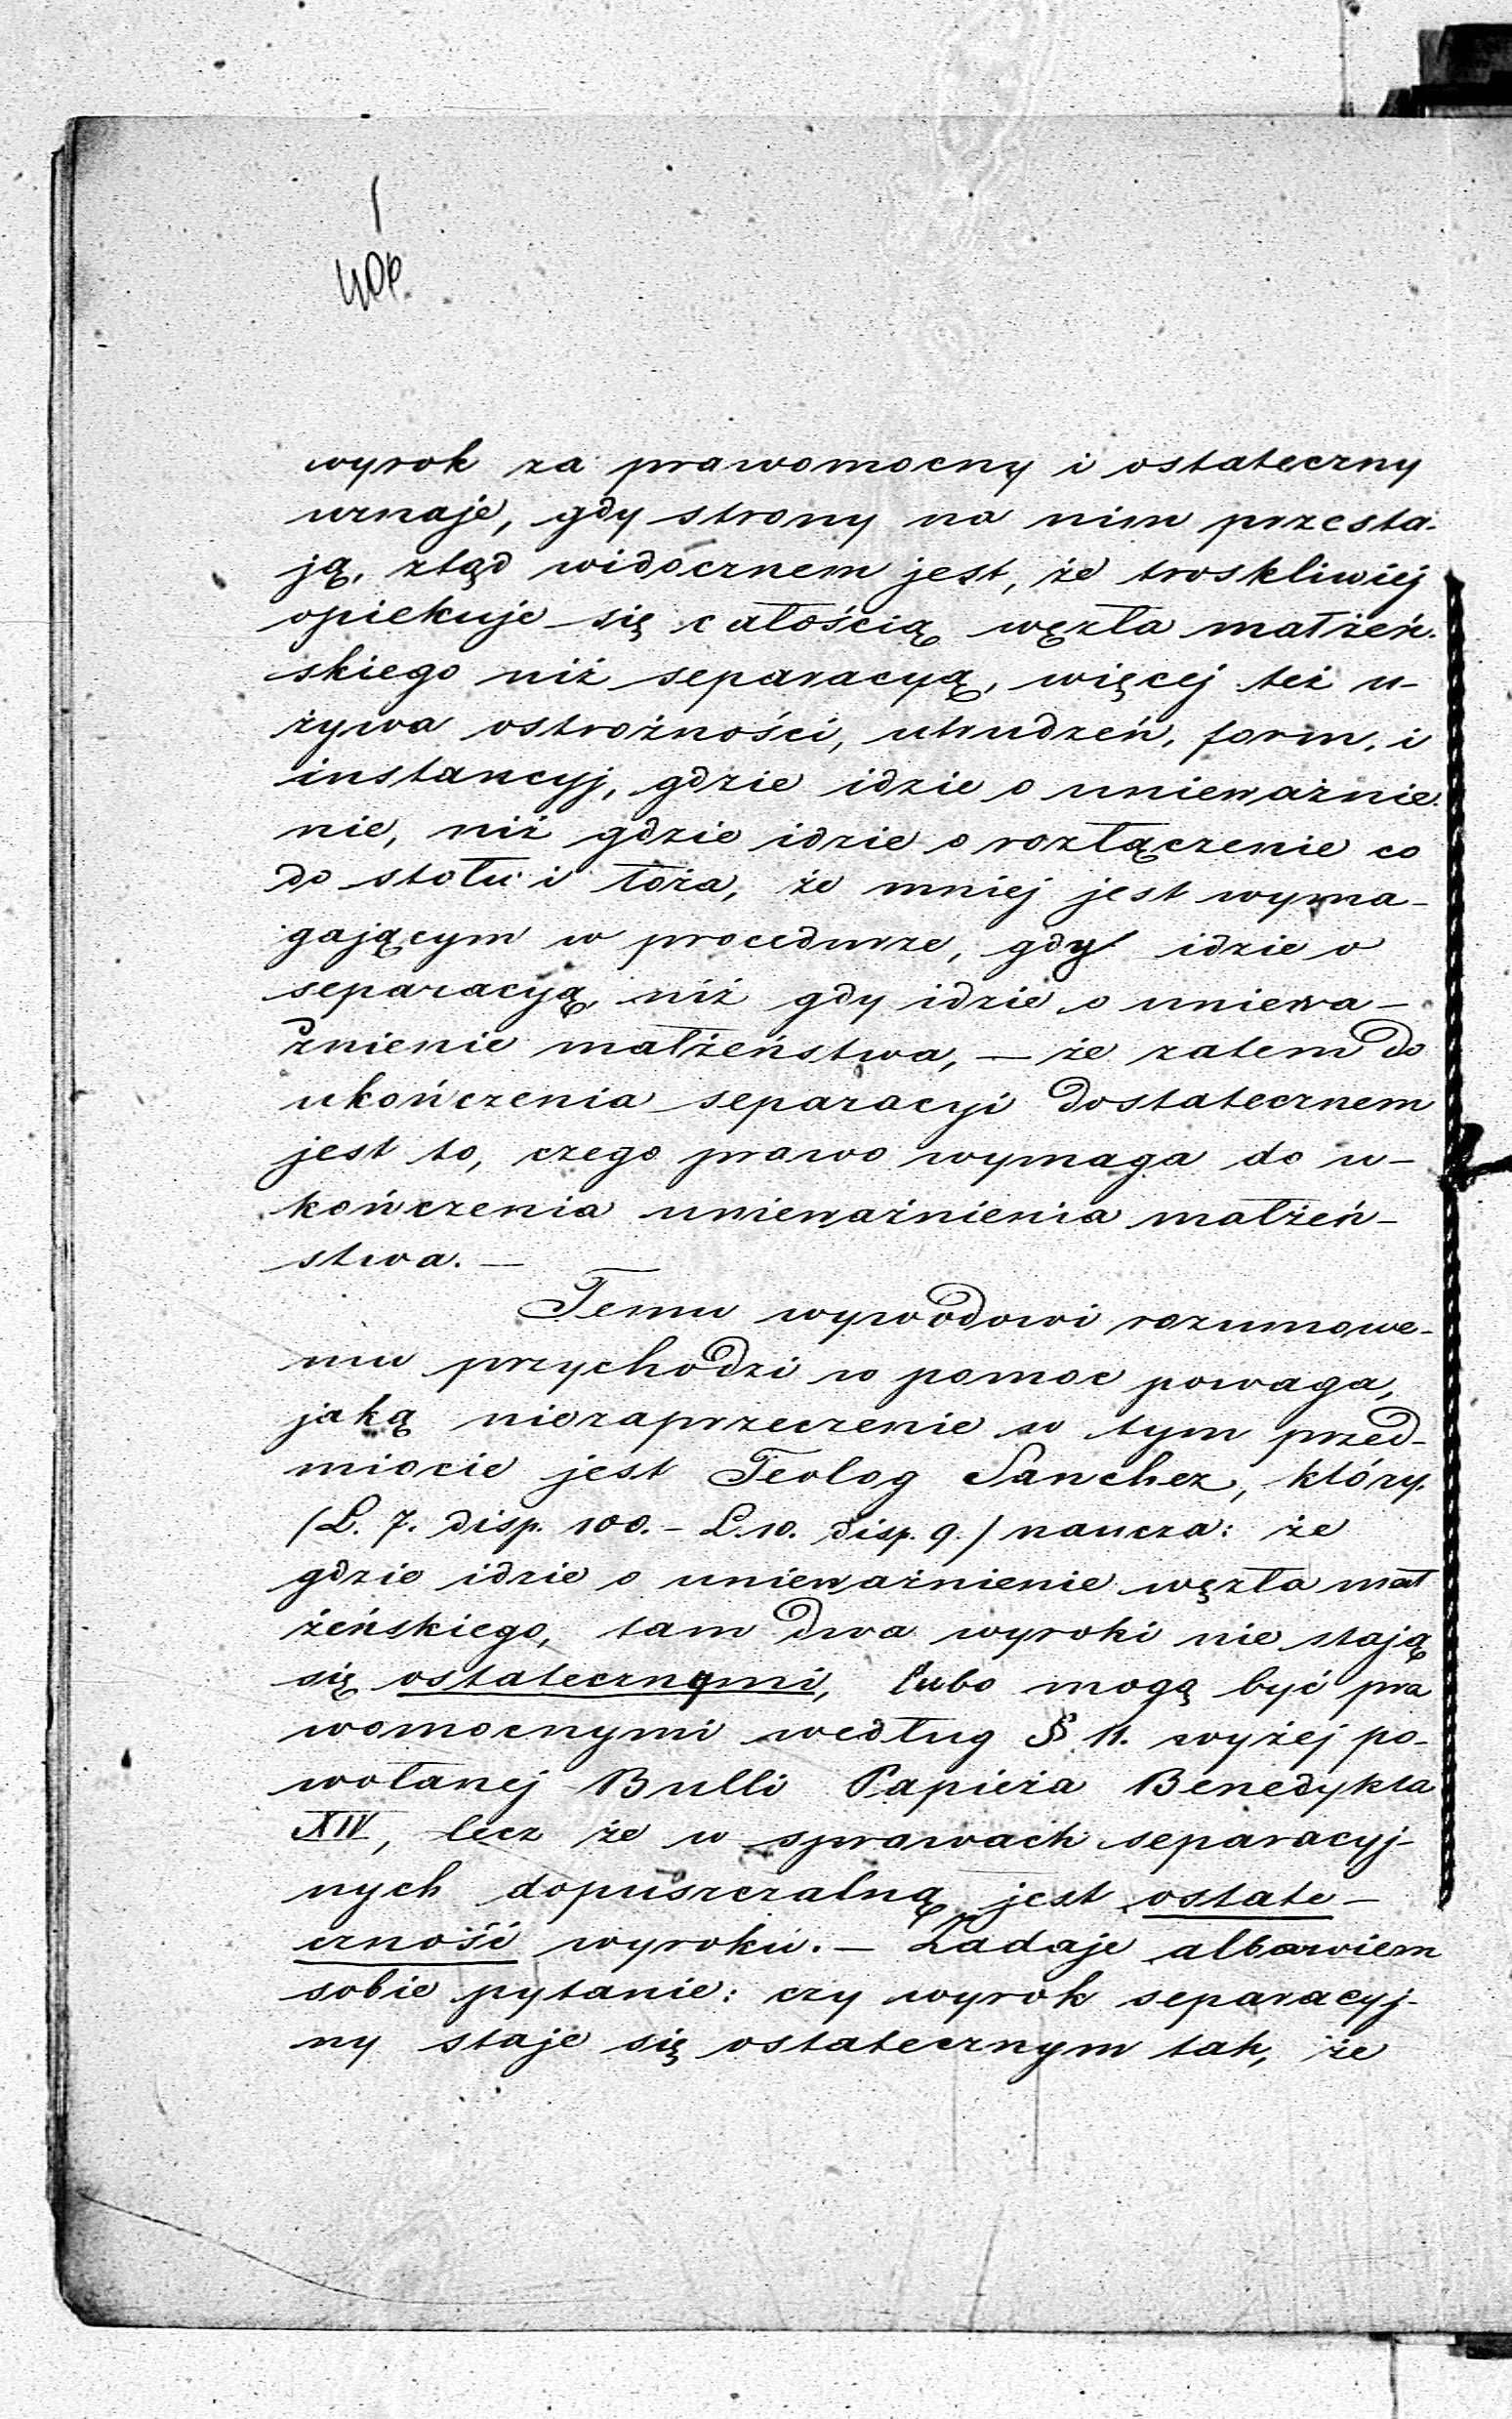 wyrok za prawomocny i ostateczny
uznaje, gdy strony na nim przesta-
ją, ztąd widocznem jest, że troskliwiej
opiekuje się całością węzła małżeń-
skiego niż separacyą, więcej też u-
żywa ostrożności, utrudzeń, form, i
instancyj, gdzie idzie o unieważnie-
nie, niż gdzie idzie o rozłączenie co
do stołu i łoża, że mniej jest wyma-
gającym w procedurze, gdy idzie o
separacyą, niż gdy idzie o uniewa-
żnienie małżeństwa, — że zatem do
ukończenia separacyi dostatecznem
jest to, czego prawo wymaga do u-
kończenia unieważnienia małżeń-
stwa. —
Temu wywodowi rozumowe-
mu przychodzi w pomoc powaga,
jaką niezaprzeczenie w tym przed-
miocie jest Teolog Sanchez, który
(L. 7. disp. 100. - L. 10. disp. 9.) naucza: że
gdzie idzie o unieważnienie węzła mał
żeńskiego, tam dwa wyroki nie stają
się ostatecznymi, lubo mogą być pra
womocnymi według § 11. wyżej po-
wołanej Bulli Papieża Benedykta
XIV, lecz że w sprawach separacyj-
nych dopuszczalną jest ostate-
czność wyroku. — Zadaje albowiem
sobie pytanie: czy wyrok separacyj-
ny staje się ostatecznym tak, że